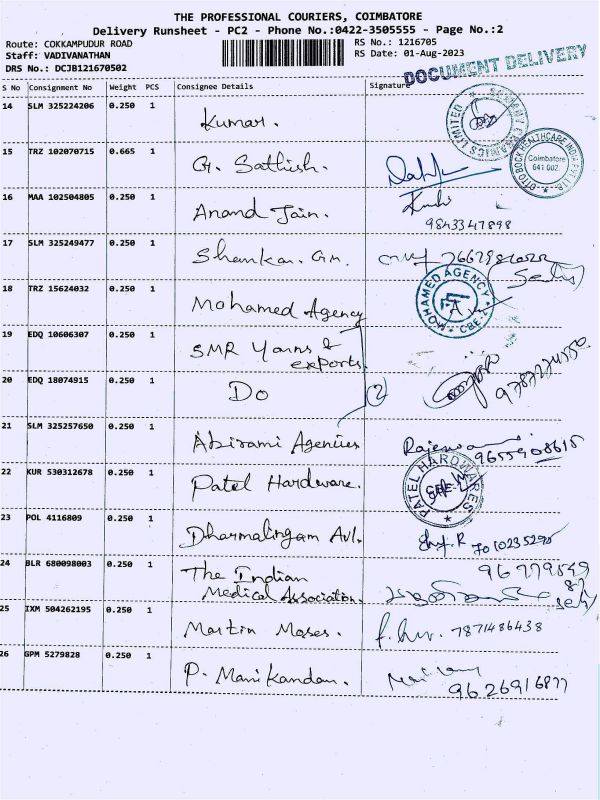 THE PROFESSIONAL COURIERS, COIMBATORE
Delivery Runsheet - PC2 - Phone No.:0422-3505555 - Page No.:2
Route: COKKAMPUDUR ROAD RS No.: 1216705
Staff: VADIVANATHAN RS Date: 01-Aug-2023
DRS No.: DCJB121670502
DOCUMENT DELIVERY
S No Consignment No Weight PCS Consignee Details Signature
14 SLM 325224206 0.250 1 Kumar.
15 TRZ 102070715 0.665 1 G. Sathish.
OTTO BOCK HEALTHCARE INDIA PVT. LTD. Coimbatore 641 002.
16 MAA 102504805 0.250 1 Anand Jain.
9843347898
17 SLM 325249477 0.250 1 Shankar. Gn.
18 TRZ 15624032 0.250 1 Mohamed Agency
MOHAMED AGENCY CBE-2
19 EDQ 10606307 0.250 1 SMR Yarns &
exports.
20 EDQ 18074915 0.250 1 Do (2)
21 SLM 325257650 0.250 1 Abirami Agencies Rajeswari
9655908615
22 KUR 530312678 0.250 1 Patel Hardware.
PATEL HARDWARES
23 POL 4116809 0.250 1 Dharmalingam Avl.
7010235290
24 BLR 680098003 0.250 1 The Indian
Medical Association.
25 IXM 504262195 0.250 1 Martin Moses. 7871486438
26 GPM 5279828 0.250 1 P. Manikandan.
9626916877